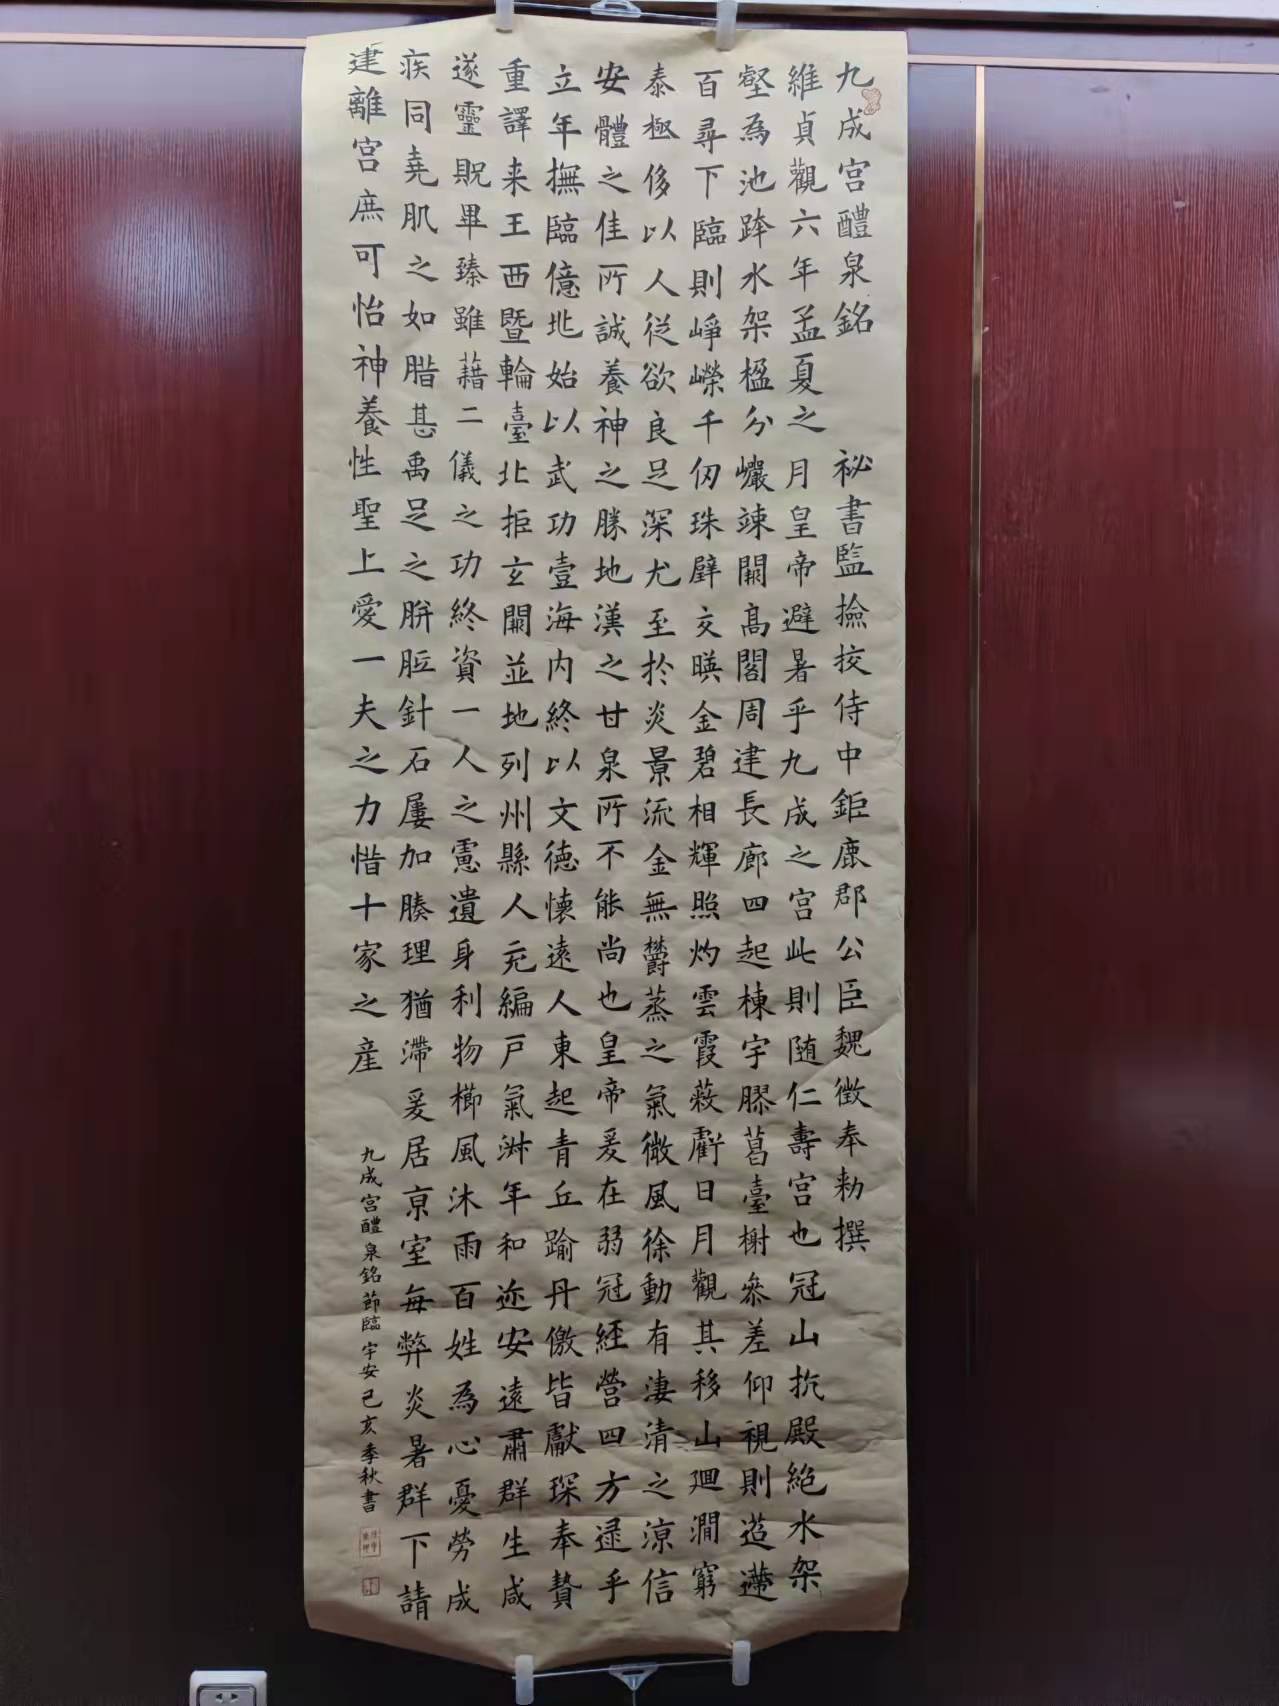 九成宮醴泉銘 祕書監撿挍侍中鉅鹿郡公臣魏徵奉勑撰
維貞觀六年孟夏之月皇帝避暑乎九成之宮此則随仁壽宮也冠山抗殿絶水架
壑為池跨水架楹分巗竦闕高閣周建長廊四起棟宇膠葛臺榭參差仰視則迢遰
百尋下臨則崢嶸千仞珠壁交暎金碧相輝照灼雲霞蔽虧日月觀其移山廻澗窮
泰極侈以人從欲良足深尤至於炎景流金無欝蒸之氣微風徐動有淒清之涼信
安體之佳所誠養神之勝地漢之甘泉所不能尚也皇帝爰在弱冠經營四方逯乎
立年撫臨億兆始以武功壹海内終以文德懷遠人東起青丘踰丹儌皆獻琛奉贄
重譯来王西暨輪臺北拒玄闕並地列州縣人充編戸氣淑年和迩安遠肅群生咸
遂靈貺畢臻雖藉二儀之功終資一人之慮遺身利物櫛風沐雨百姓為心憂勞成
疾同堯肌之如腊甚禹足之胼胝針石屢加腠理猶滯爰居京室每弊炎暑群下請
建離宮庶可怡神養性聖上愛一夫之力惜十家之産
九成宮醴泉銘節臨宇安己亥季秋書